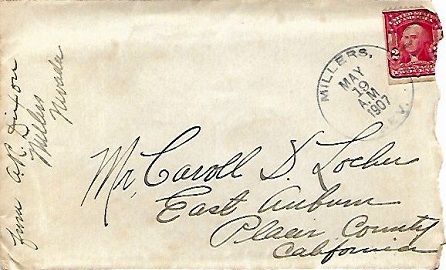 from A.R. Dixon
Millers
Nevada
MILLERS,
MAY
19
A.M.
1907
2
Mr. Caroll D. Locher
East Auburn
Placer County
California